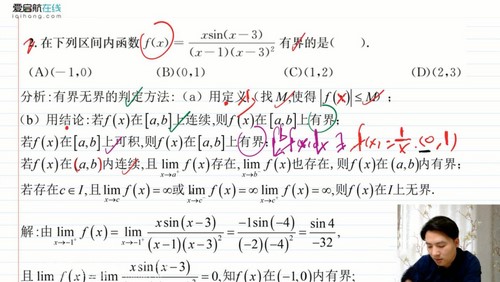 爱启航在线
iqihang.com
2. 在下列区间内函数 f(x) = xsin(x-3) / (x-1)(x-3)² 有界的是( ).
(A)(-1,0) (B)(0,1) (C)(1,2) (D)(2,3)
分析:有界无界的判定方法:(a)用定义(找 M,使得 |f(x)| ≤ M) ;
(b)用结论:若f(x)在[a,b]上连续,则f(x)在[a,b]上有界;
若f(x)在[a,b]上可积,则f(x)在[a,b]上有界; ∫ f(x)dx f(x) = 1/x (0,1)
若f(x)在(a,b)内连续,且 lim x→a⁺ f(x)存在, lim x→b⁻ f(x)也存在,则f(x)在(a,b)内有界;
若存在c∈I,且 lim x→c f(x)=∞或 lim x→c⁺ f(x)=∞ lim x→c⁻ f(x)=∞,则f(x)在I上无界.
解:由 lim x→-1⁺ f(x) = lim x→-1⁺ xsin(x-3) / (x-1)(x-3)² = -1sin(-4) / (-2)(-4)² = sin4 / -32,
且 lim f(x) = lim xsin(x-3) = 0,知f(x)在(-1,0)内有界;